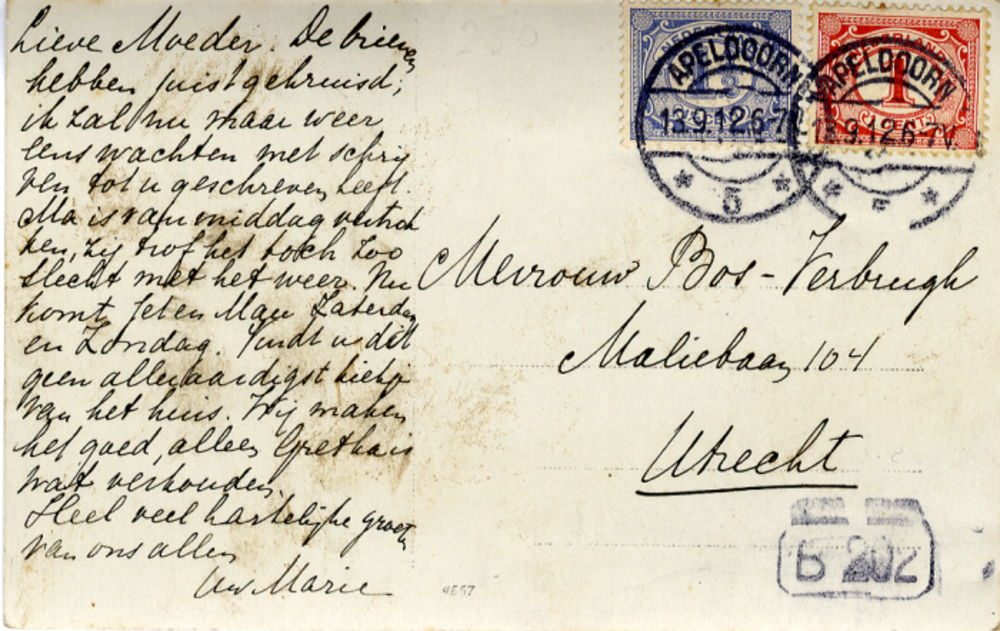 Lieve Moeder. De brieven
hebben juist gekruisd;
ik zal nu maar weer
eens wachten met schrij
ven tot u geschreven heeft.
Ma is van middag vertrok
ken, zij trof het toch zoo
slecht met het weer. Nu
komt Jet en Mau Zaterdag
en Zondag. Vindt u dit
geen alleraardigst kiekje
van het huis. Wij maken
het goed, alleen Gretha is
wat verkouden,
Heel veel hartelijke groeten
van ons allen
Uw Marie
4657
APELDOORN
13.9.12.6-7
5
APELDOORN
13.9.12.6-7V.
1
Mevrouw Bos-Verbrugh
Maliebaan 104
Utrecht
B 202